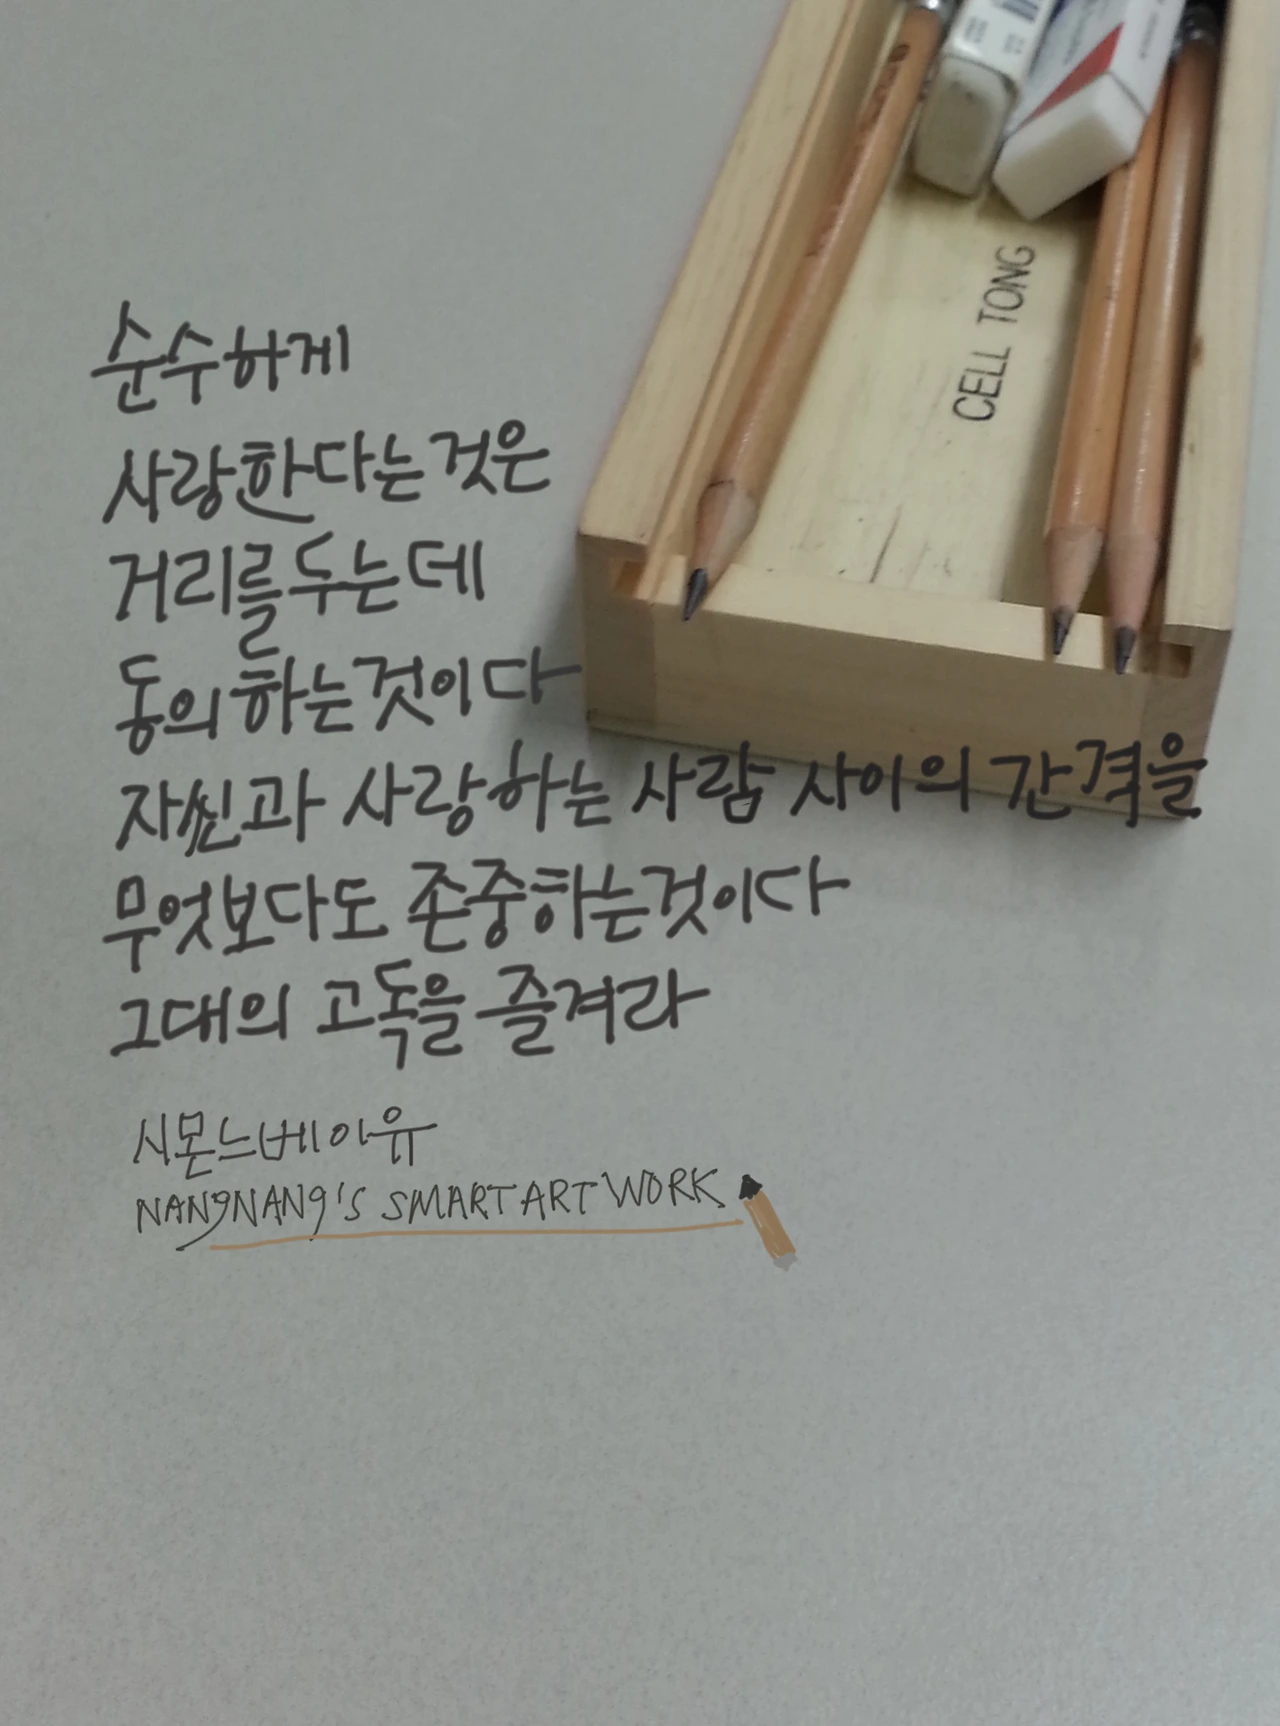 CELL TONG
순수하게
사랑한다는것은
거리를두는데
동의하는것이다
자씬과 사랑하는 사람 사이의 간격을
무엇보다도 존중하는것이다
그대의 고독을 즐겨라
시몬느베이유
NANgNANg'S SMART ART WORK